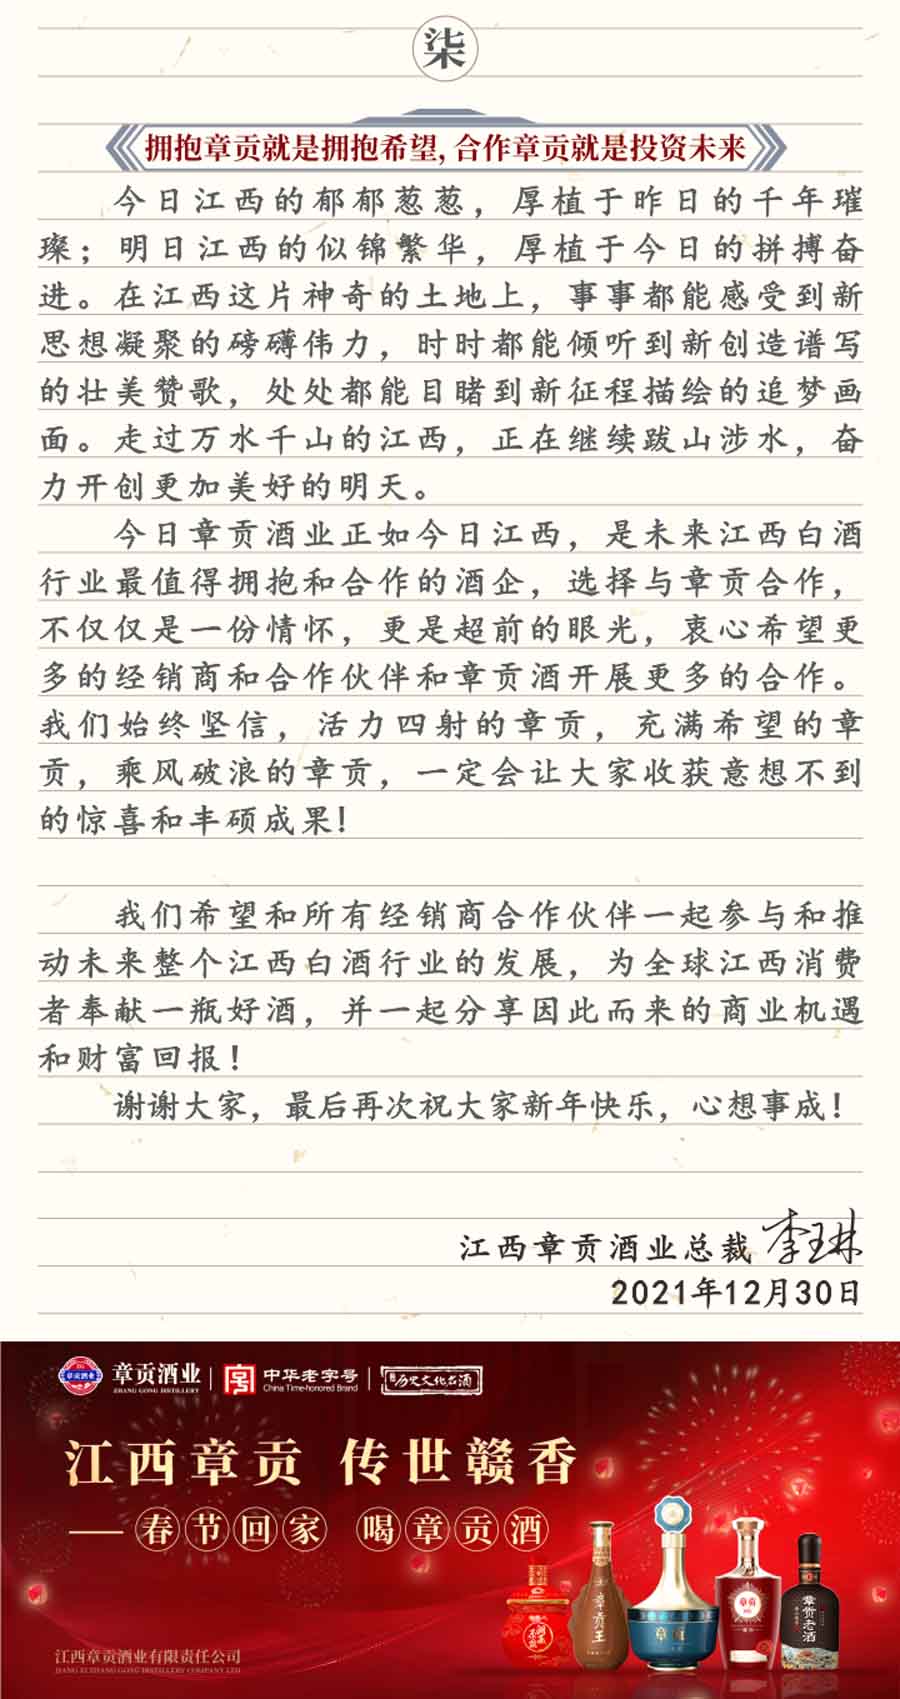 柒
拥抱章贡就是拥抱希望,合作章贡就是投资未来
今日江西的郁郁葱葱，厚植于昨日的千年璀
璨；明日江西的似锦繁华，厚植于今日的拼搏奋
进。在江西这片神奇的土地上，事事都能感受到新
思想凝聚的磅礴伟力，时时都能倾听到新创造谱写
的壮美赞歌，处处都能目睹到新征程描绘的追梦画
面。走过万水千山的江西，正在继续跋山涉水，奋
力开创更加美好的明天。
今日章贡酒业正如今日江西，是未来江西白酒
行业最值得拥抱和合作的酒企，选择与章贡合作，
不仅仅是一份情怀，更是超前的眼光，衷心希望更
多的经销商和合作伙伴和章贡酒开展更多的合作。
我们始终坚信，活力四射的章贡，充满希望的章
贡，乘风破浪的章贡，一定会让大家收获意想不到
的惊喜和丰硕成果!
我们希望和所有经销商合作伙伴一起参与和推
动未来整个江西白酒行业的发展，为全球江西消费
者奉献一瓶好酒，并一起分享因此而来的商业机遇
和财富回报！
谢谢大家，最后再次祝大家新年快乐，心想事成！
江西章贡酒业总裁 李玉琳
2021年12月30日
章贡酒业 ZHANG GONG DISTILLERY 中华老字号 China Time-honored Brand 历史文化名酒
江西章贡 传世赣香
——春节回家 喝章贡酒
章贡王
章贡
章贡
章贡老酒
江西章贡酒业有限责任公司
JIANG XI ZHANG GONG DISTILLERY COMPANY LTD